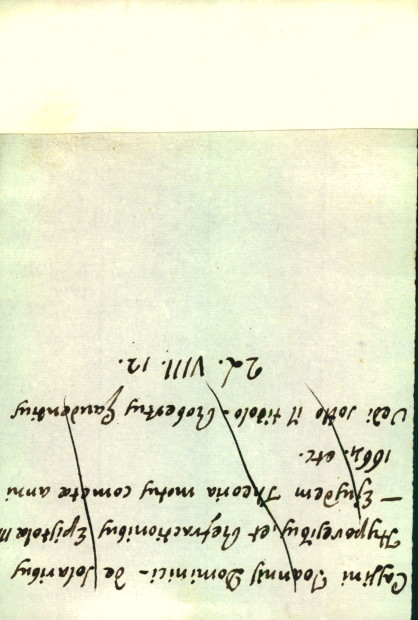 Cassini Joannis Dominici - De solaribus
Hypothesibus, et Refractionibus Epistolæ
— Ejusdem Theoria motus cometæ anni
1664. etc.
Vedi sotto il titolo - Robertus Gaudentius
2d. VIII. 12.